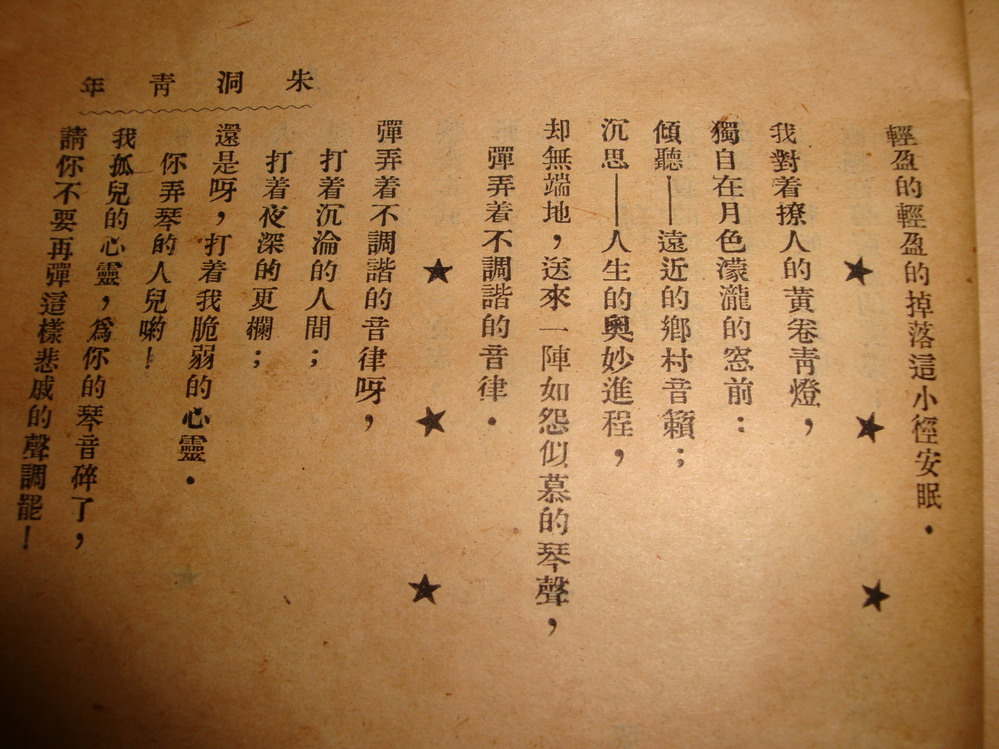 朱洞青年
輕盈的輕盈的掉落這小徑安眠．
★ ★ ★
我對着撩人的黃卷青燈，
獨自在月色濛瀧的窓前：
傾聽——遠近的鄉村音籟；
沉思——人生的奧妙進程，
却無端地，送來一陣如怨似慕的琴聲，
彈弄着不調諧的音律．
★ ★ ★
彈弄着不調諧的音律呀，
打着沉淪的人間；
打着夜深的更欄；
還是呀，打着我脆弱的心靈．
你弄琴的人兒喲！
我孤兒的心靈，爲你的琴音碎了，
請你不要再彈這樣悲戚的聲調罷！